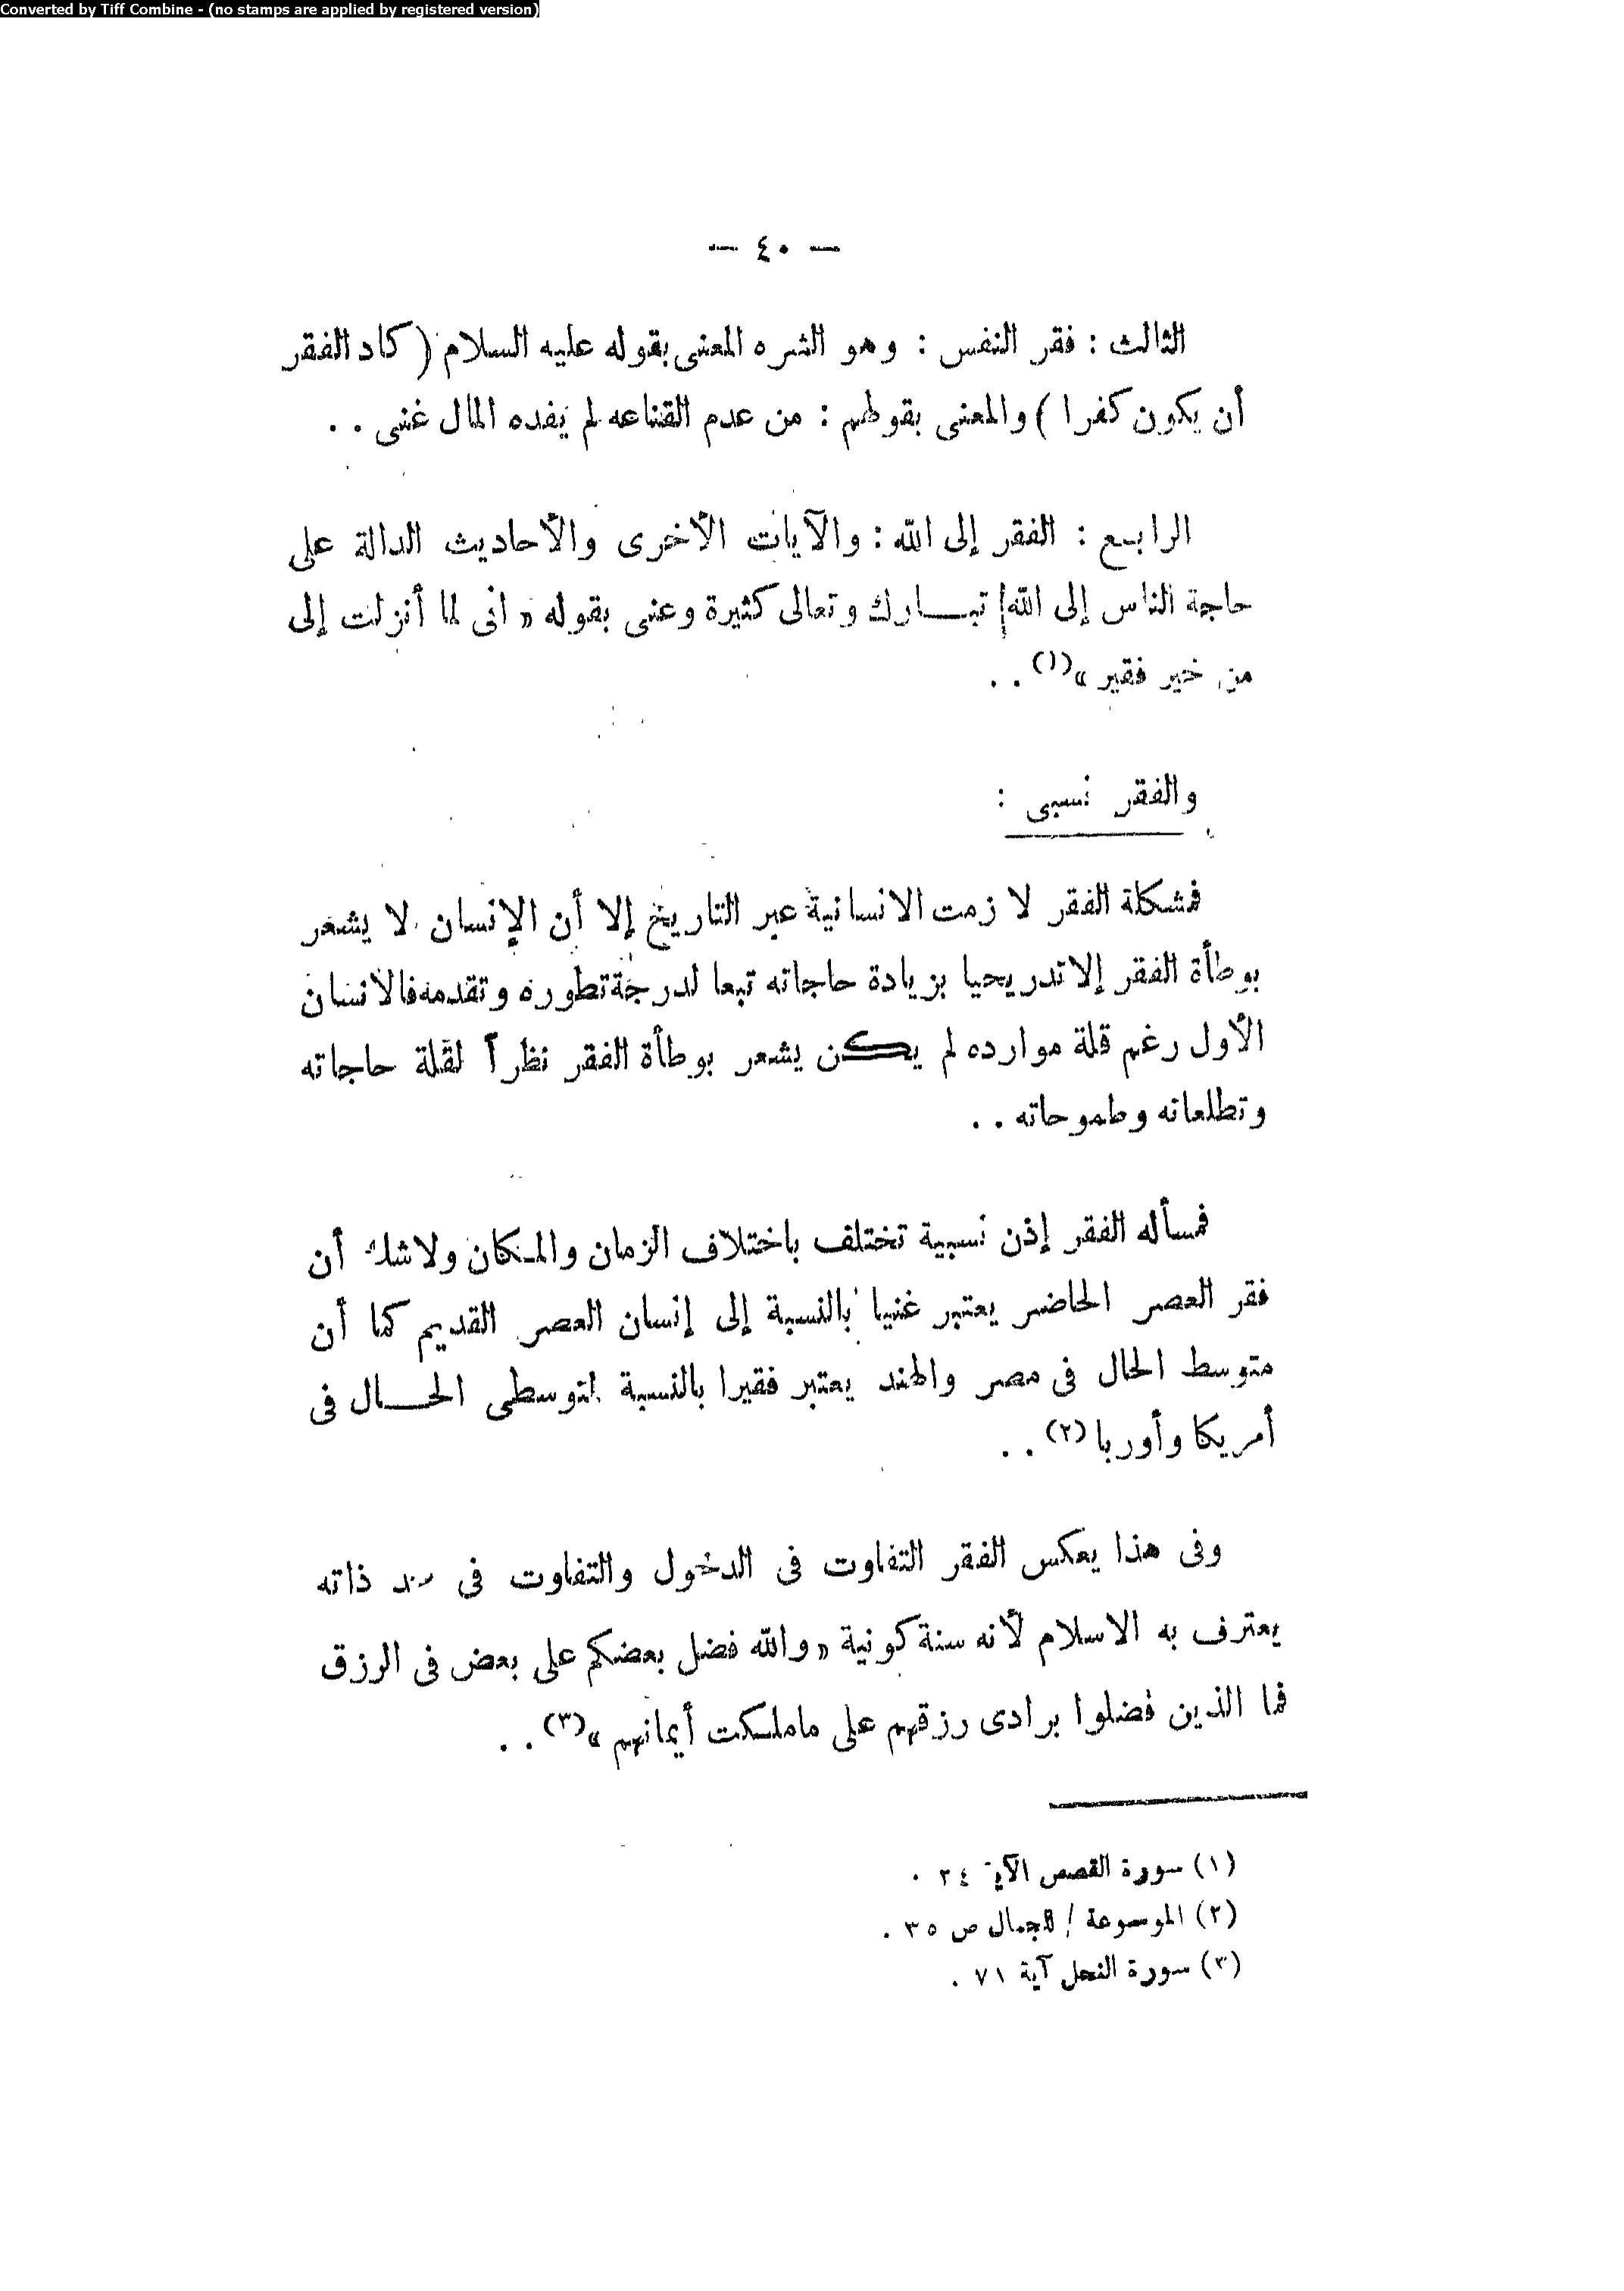 Converted by Tiff Combine - (no stamps are applied by registered version)
— ٤٠ —
الثالث : فقر النفس : وهو الشره المعنى بقوله عليه السلام ( كاد الفقر
أن يكون كفرا ) والمعنى بقولهم : من عدم القناعه لم يفده المال غنى . .
الرابع : الفقر إلى الله : والآيات الأخرى والأحاديث الدالة على
حاجة الناس إلى الله تبارك وتعالى كثيرة وعنى بقوله « انى لما أنزلت إلى
من خير فقير »(١) . .
والفقر نسبى :
فمشكلة الفقر لازمت الانسانية عبر التاريخ إلا أن الإنسان لا يشعر
بوطأة الفقر إلا تدريحيا بزيادة حاجاته تبعا لدرجة تطوره وتقدمه فالانسان
الأول رغم قلة موارده لم يكن يشعر بوطأة الفقر نظراً لقلة حاجاته
وتطلعاته وطموحاته . .
فمسأله الفقر إذن نسبية تختلف باختلاف الزمان والمكان ولاشك أن
فقر العصر الحاضر يعتبر غنيا بالنسبة إلى إنسان العصر القديم كما أن
متوسط الحال فى مصر والهند يعتبر فقيرا بالنسبة لمتوسطى الحال فى
أمريكا وأوربا (٢) . .
وفى هذا يعكس الفقر التفاوت فى الدخول والتفاوت فى ذاته
يعترف به الاسلام لأنه سنة كونية « والله فضل بعضكم على بعض فى الرزق
فما الذين فضلوا برادى رزقهم على ماملكت أيمانهم »(٣) . .
(١) سورة القصص الآية ٢٤ .
(٢) الموسوعة / الجمال ص ٣٥ .
(٣) سورة النحل آية ٧١ .